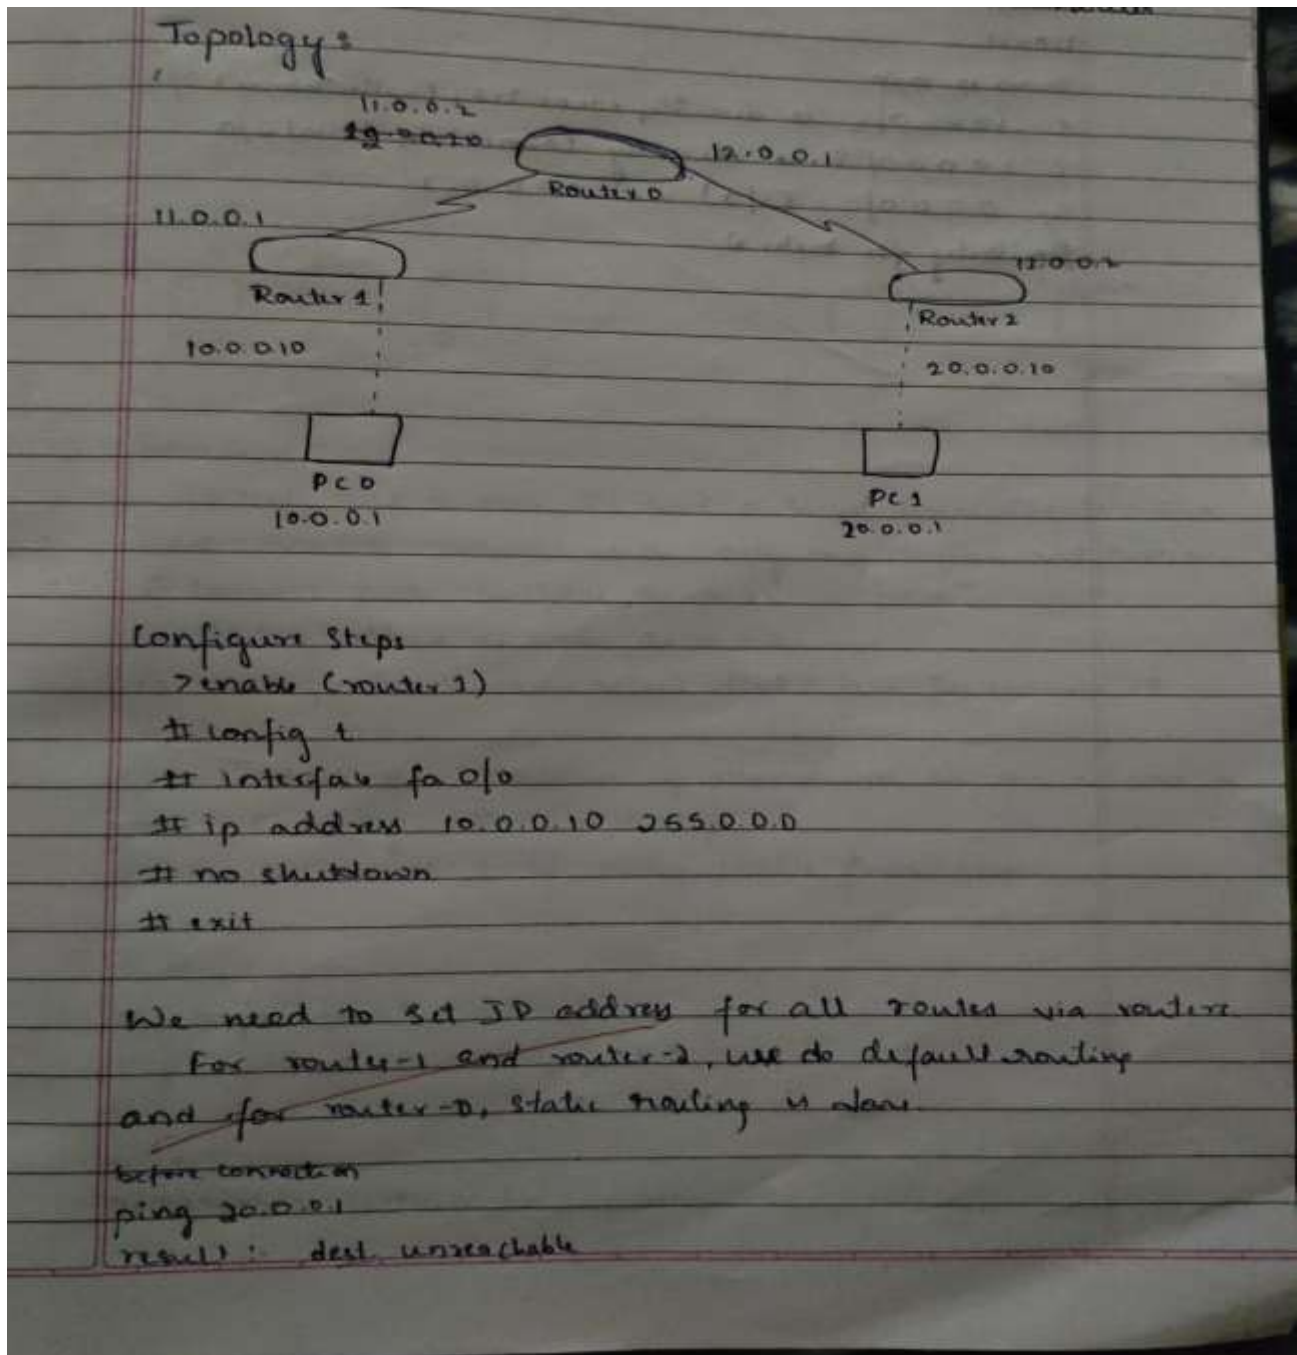 Topology :
11.0.0.2
12.0.0.1
Router 0
11.0.0.1
Router 1
Router 2
10.0.0.10
20.0.0.10
PC 0
PC 1
10.0.0.1
20.0.0.1
Configure Steps
> enable (router 1)
# config t
# interface fa 0/0
# ip address 10.0.0.10 255.0.0.0
# no shutdown
# exit
We need to set IP address for all routes via routers
For router-1 and router-2, we do default routing
and for router-0, static routing is done.
before connection
ping 20.0.0.1
result : dest. unreachable